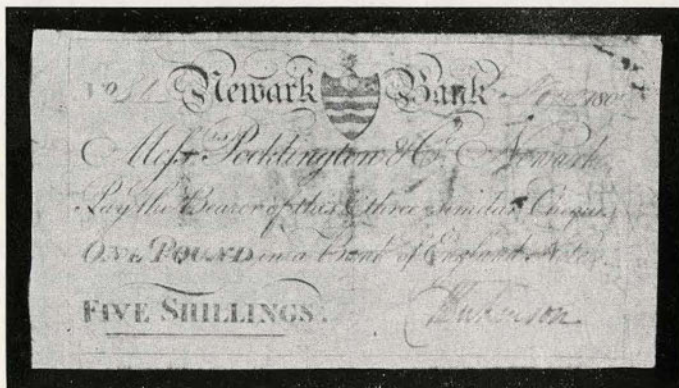 No Newark Bank Nov 180
Messrs Pocklington & Co Newark
Pay the Bearer of this & three similar Cheques
ONE POUND in a Bank of England Note.
FIVE SHILLINGS.